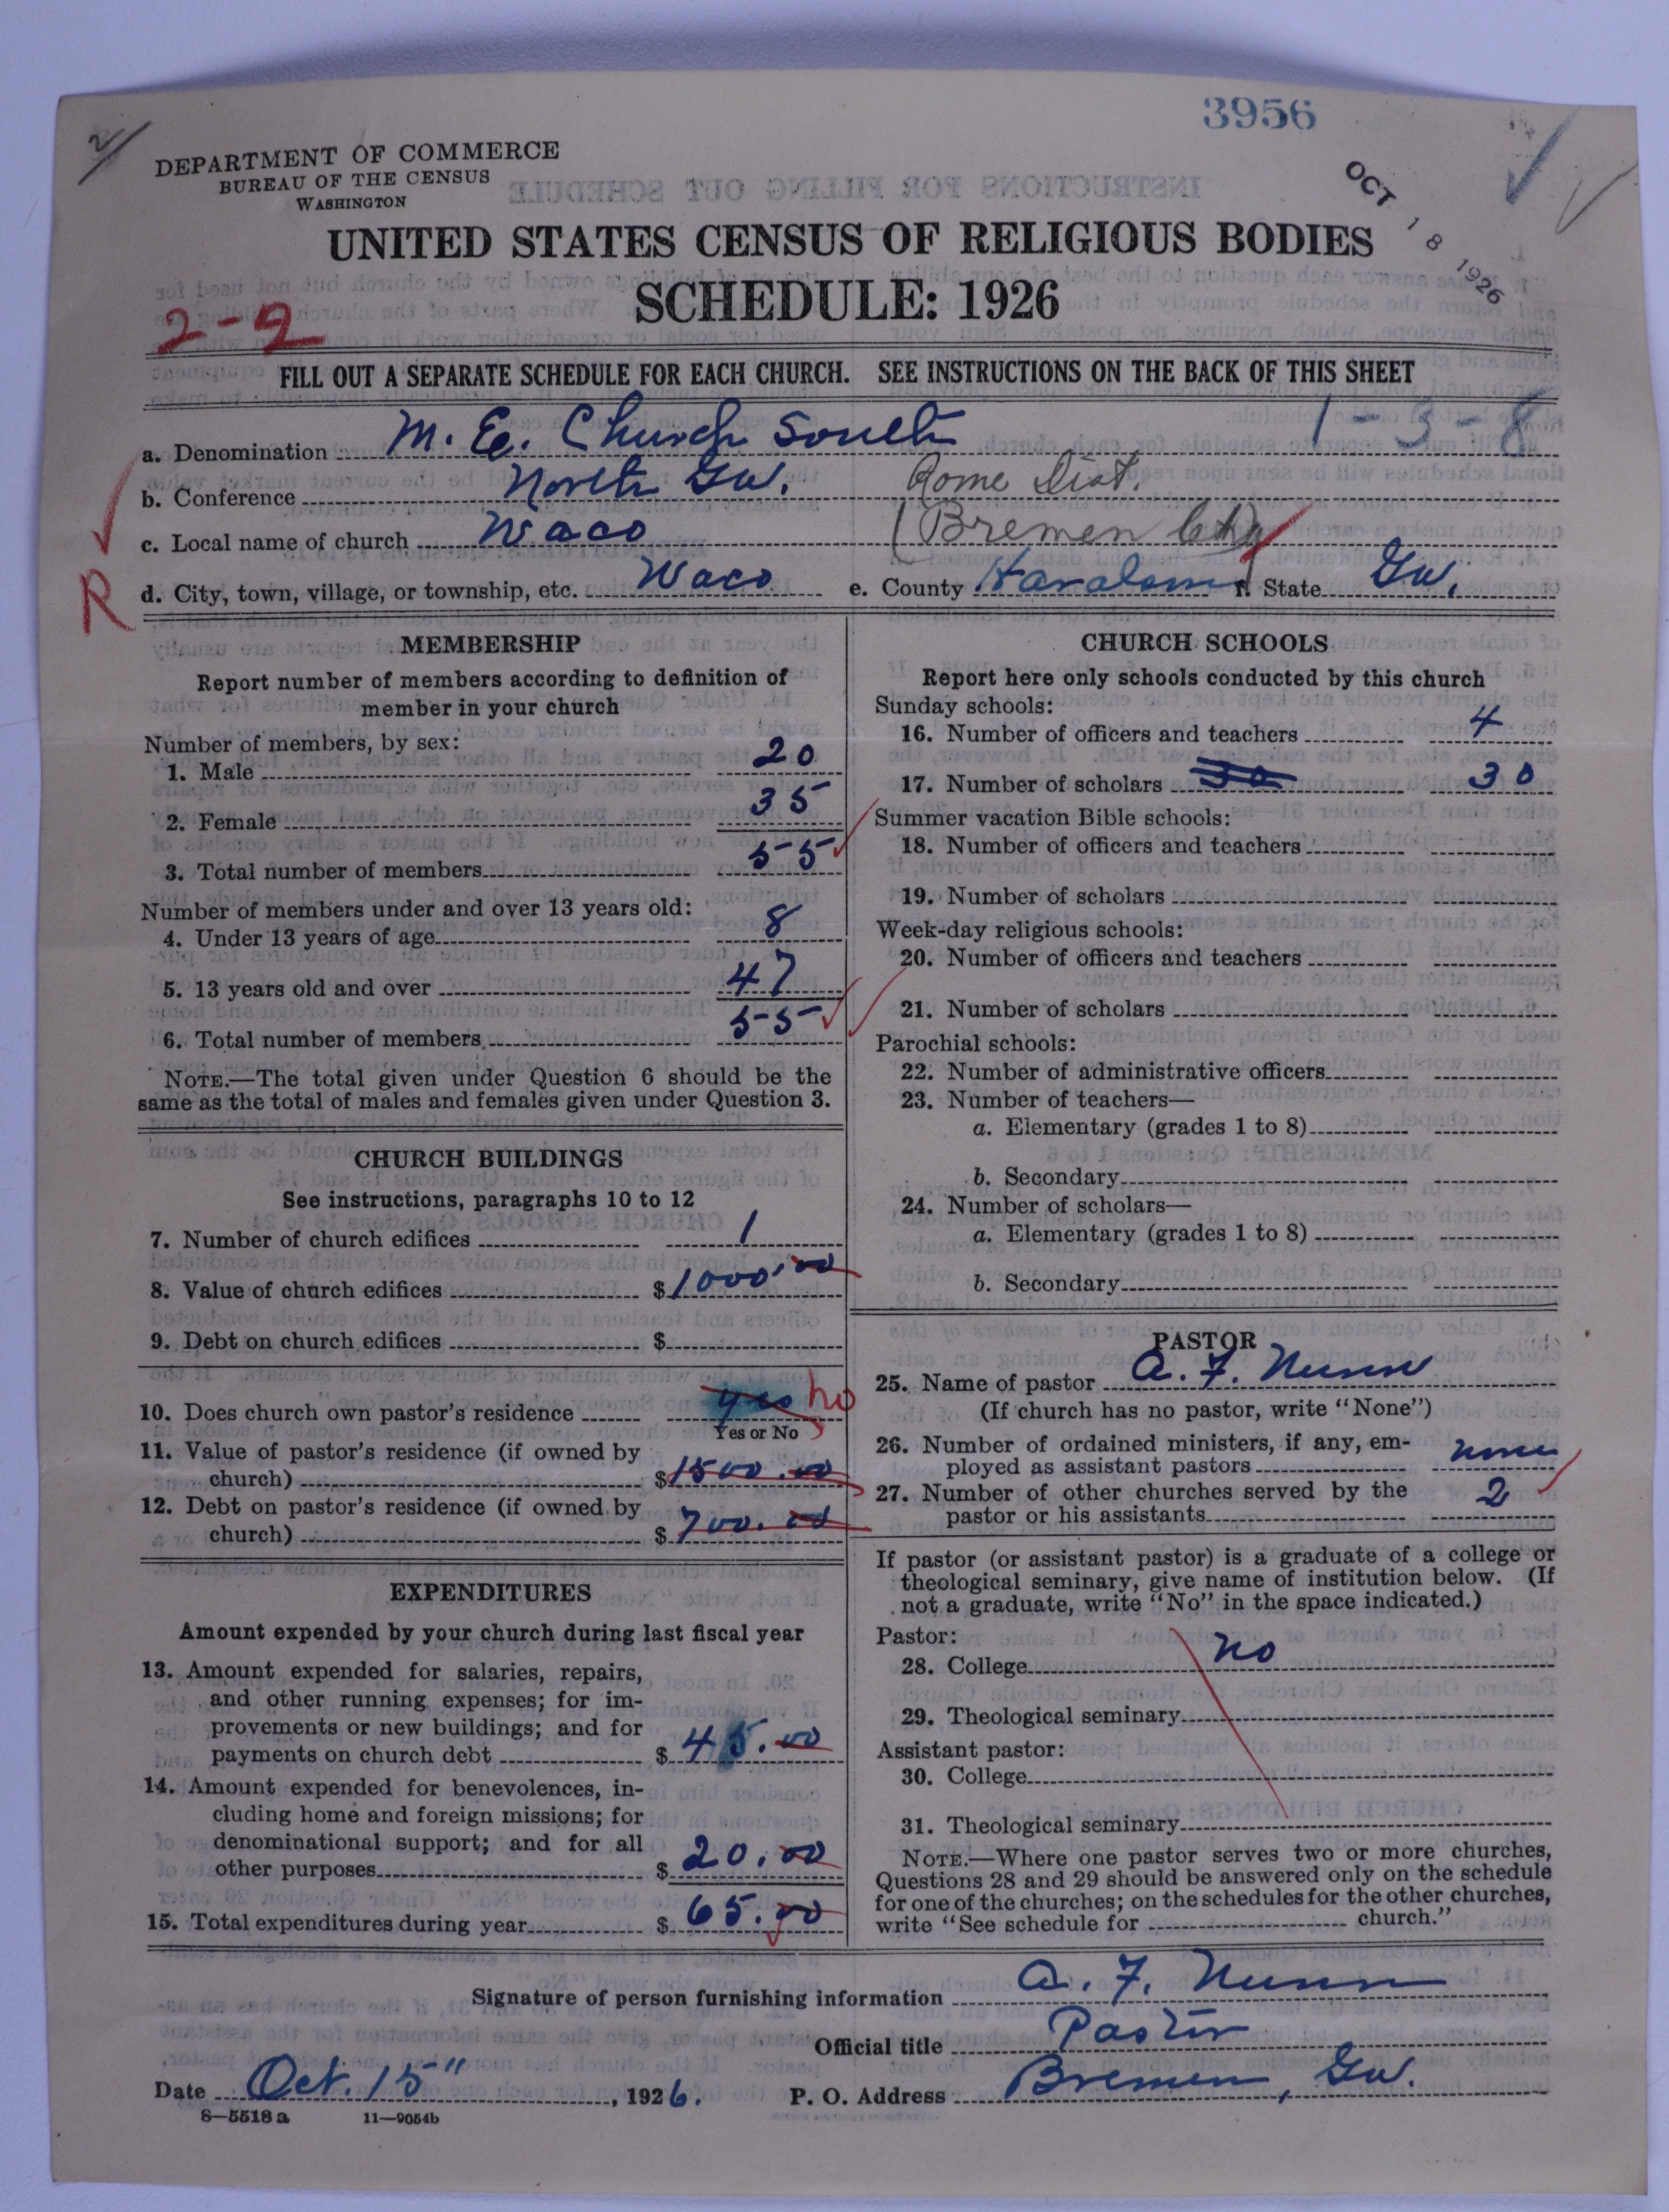 3956
2/
DEPARTMENT OF COMMERCE
BUREAU OF THE CENSUS
WASHINGTON
OCT 18 1926
UNITED STATES CENSUS OF RELIGIOUS BODIES
SCHEDULE: 1926
2-2
FILL OUT A SEPARATE SCHEDULE FOR EACH CHURCH. SEE INSTRUCTIONS ON THE BACK OF THIS SHEET
1-3-8
a. Denomination M. E. Church South
b. Conference North Ga. Rome Dist.
c. Local name of church Waco (Bremen Chg)
R
d. City, town, village, or township, etc. Waco e. County Haralson f. State Ga.
MEMBERSHIP
Report number of members according to definition of
member in your church
Number of members, by sex:
1. Male 20
2. Female 35
3. Total number of members 55
Number of members under and over 13 years old:
4. Under 13 years of age 8
5. 13 years old and over 47
6. Total number of members 55
NOTE.—The total given under Question 6 should be the
same as the total of males and females given under Question 3.
CHURCH BUILDINGS
See instructions, paragraphs 10 to 12
7. Number of church edifices 1
8. Value of church edifices $1000.00
9. Debt on church edifices $
10. Does church own pastor's residence yes no
Yes or No
11. Value of pastor's residence (if owned by
church) $1500.00
12. Debt on pastor's residence (if owned by
church) $700.00
EXPENDITURES
Amount expended by your church during last fiscal year
13. Amount expended for salaries, repairs,
and other running expenses; for im-
provements or new buildings; and for
payments on church debt $45.00
14. Amount expended for benevolences, in-
cluding home and foreign missions; for
denominational support; and for all
other purposes $20.00
15. Total expenditures during year $65.00
CHURCH SCHOOLS
Report here only schools conducted by this church
Sunday schools:
16. Number of officers and teachers 4
17. Number of scholars 30 30
Summer vacation Bible schools:
18. Number of officers and teachers
19. Number of scholars
Week-day religious schools:
20. Number of officers and teachers
21. Number of scholars
Parochial schools:
22. Number of administrative officers
23. Number of teachers—
a. Elementary (grades 1 to 8)
b. Secondary
24. Number of scholars—
a. Elementary (grades 1 to 8)
b. Secondary
PASTOR
25. Name of pastor A. F. Nunn
(If church has no pastor, write "None")
26. Number of ordained ministers, if any, em-
ployed as assistant pastors none
27. Number of other churches served by the
pastor or his assistants 2
If pastor (or assistant pastor) is a graduate of a college or
theological seminary, give name of institution below. (If
not a graduate, write "No" in the space indicated.)
Pastor:
28. College no
29. Theological seminary
Assistant pastor:
30. College
31. Theological seminary
NOTE.—Where one pastor serves two or more churches,
Questions 28 and 29 should be answered only on the schedule
for one of the churches; on the schedules for the other churches,
write "See schedule for church."
Signature of person furnishing information A. F. Nunn
Official title Pastor
Date Oct. 15", 1926. P. O. Address Bremen, Ga.
8—5518a 11—9054b